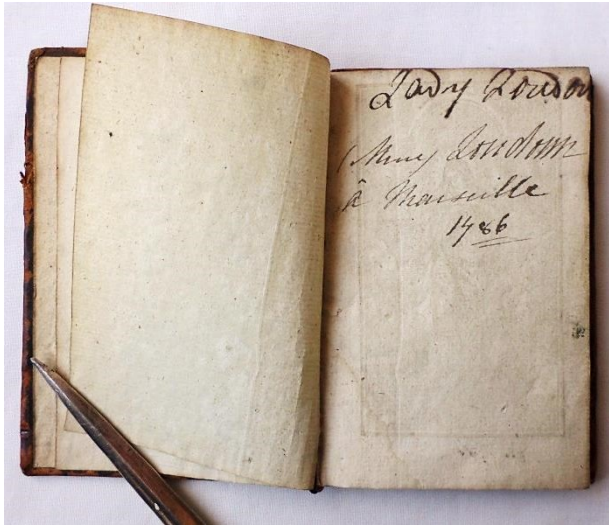 Lady Loudon
Loudoun
à Marseille
1786